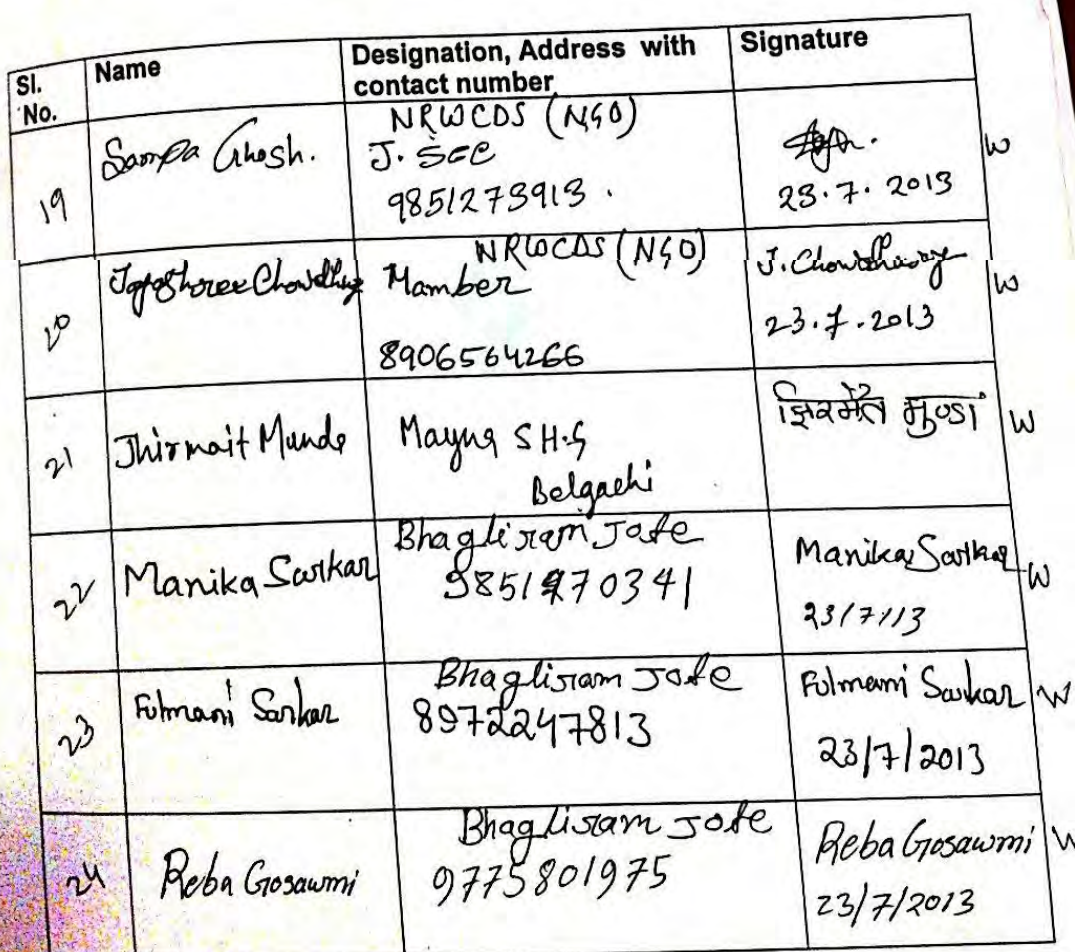 Sl. No.
Name
Designation, Address with contact number
Signature
19
Sampa Ghosh.
NRWCDS (NGO)
J. SEC
9851273913.
23.7.2013
W
20
Chowdhury
NRWCDS (NGO)
Mamber
8906564266
J. Chowdhury
23.7.2013
W
21
Jhirmait Munda
Mayna S H.G
Belgachi
झिरमैत मुण्डा
W
22
Manika Sarkar
Bhagliram Jote
9851170341
Manika Sarkar
23/7/13
W
23
Fulmani Sarkar
Bhagliram Jote
8972247813
Fulmani Sarkar
23/7/2013
W
24
Reba Gosawmi
Bhagliram Jote
9775801975
Reba Gosawmi
23/7/2013
W